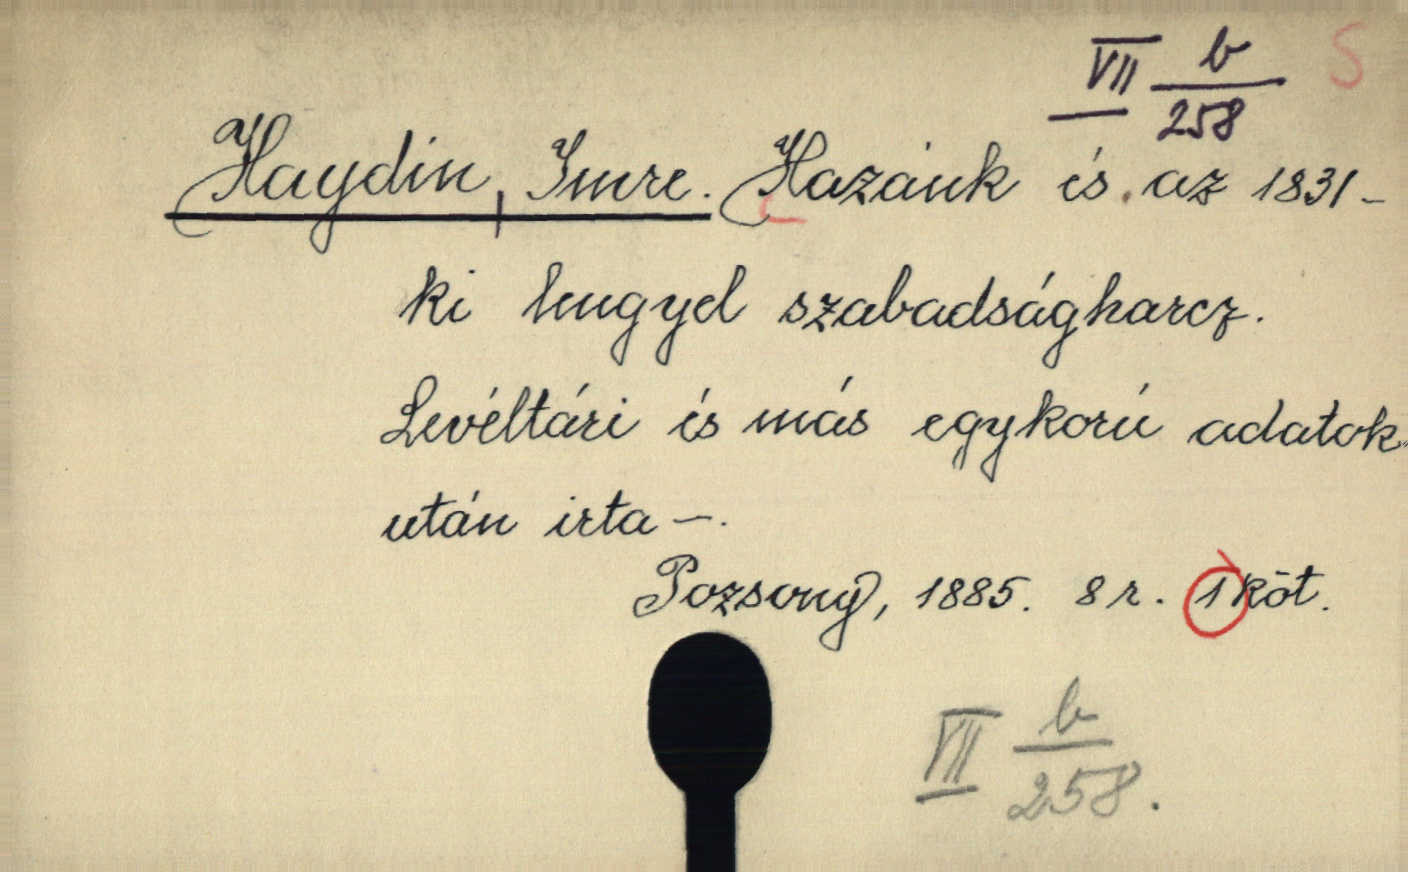 VII b/258 S
Haydin, Imre. Hazánk és az 1831-
ki lengyel szabadságharcz.
Levéltári és más egykorú adatok
után irta —.
Pozsony, 1885. 8 r. 1 köt.
VII b/258.